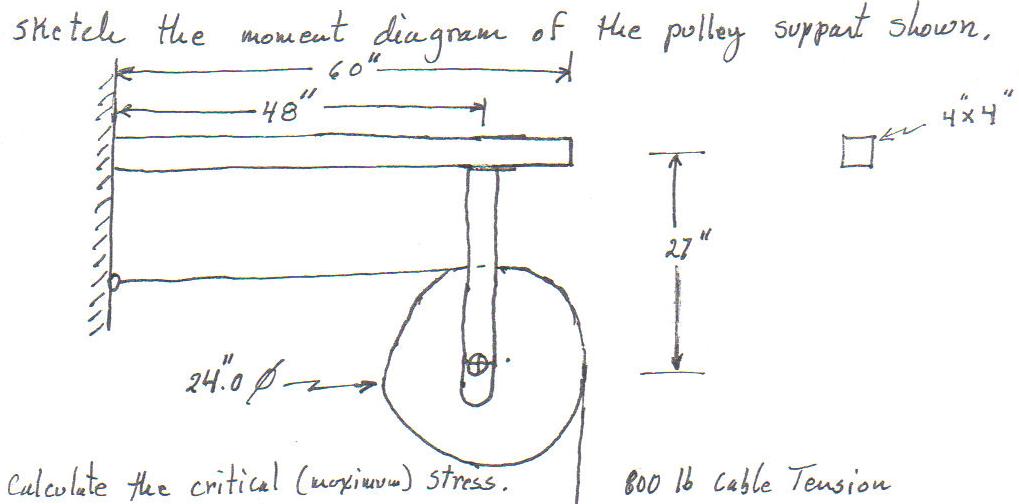 sketch the moment diagram of the pulley support shown.
60"
48"
4"x4"
27"
24".0 Ø
Calculate the critical (maximum) stress.
800 lb Cable Tension